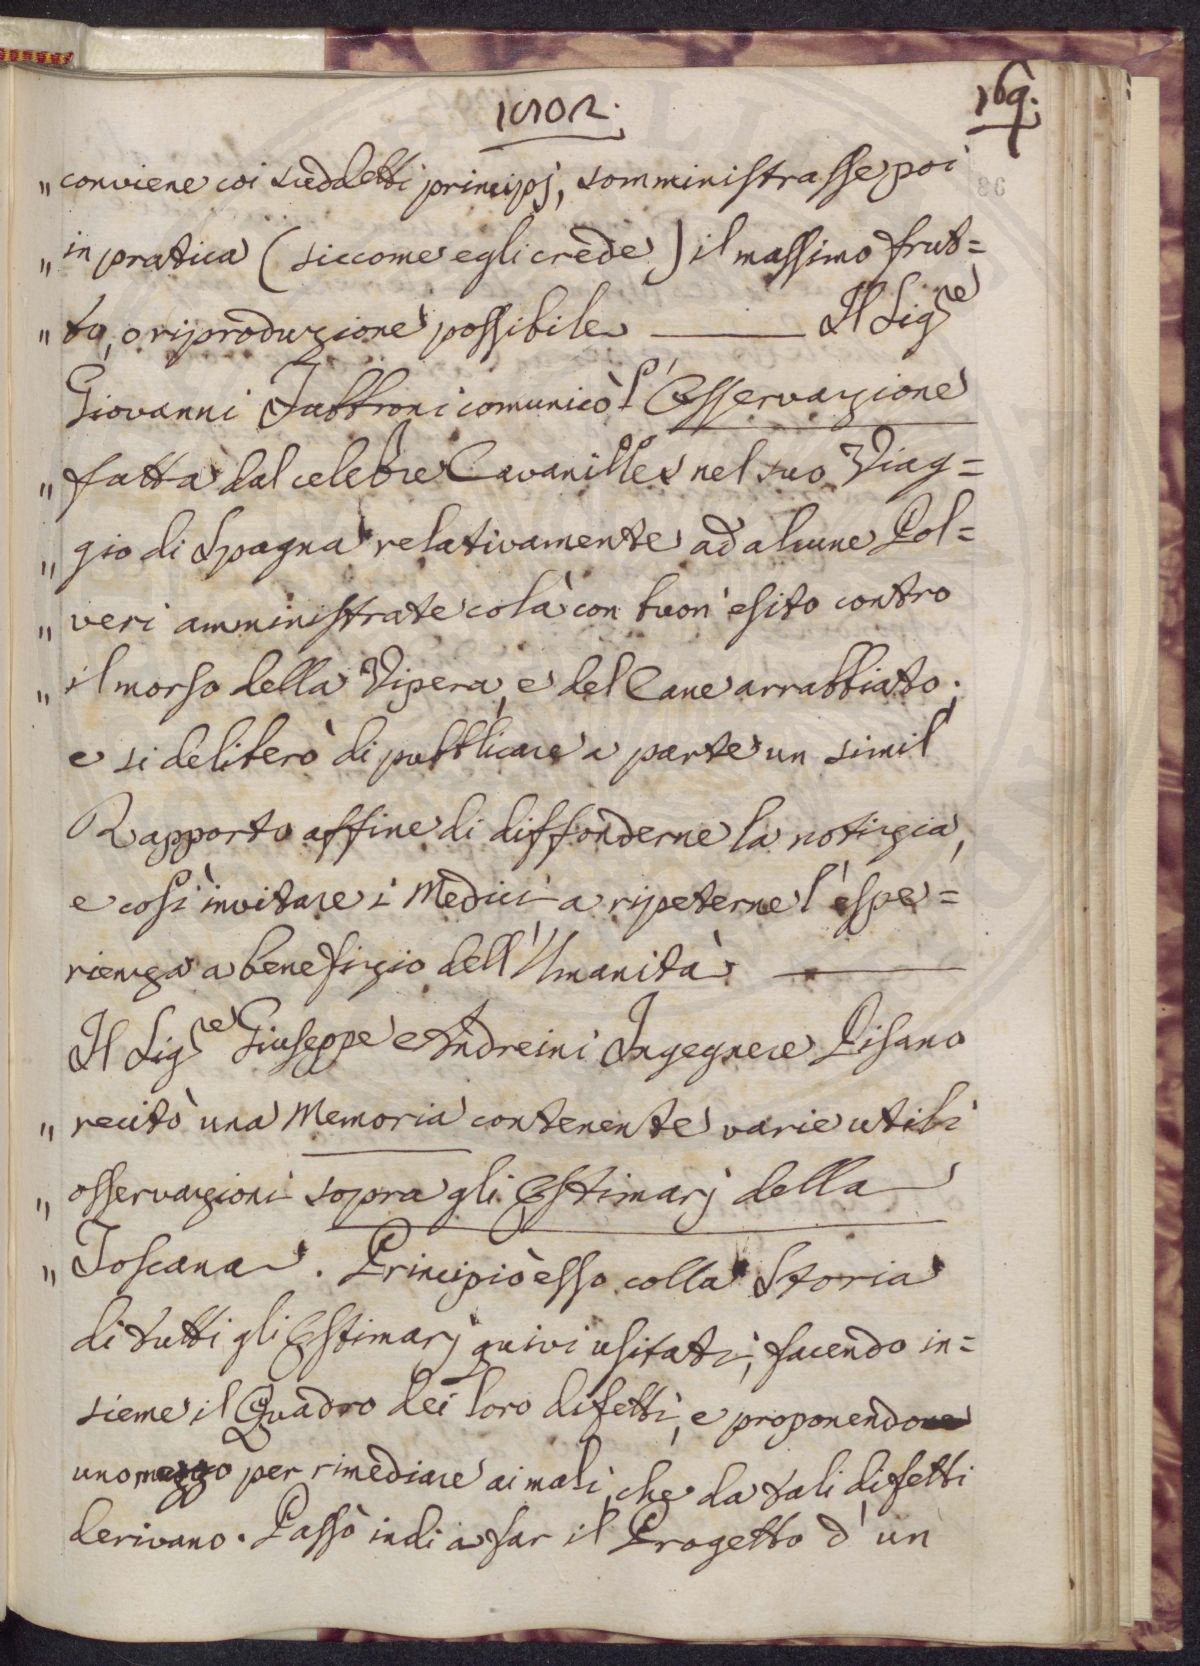 1802.
169.
„ conviene coi suddetti principj, somministrasse poi
„ in pratica (siccome egli crede) il massimo frut=
„ to, o riproduzione possibile ——— Il Sig.re
Giovanni Fabbroni comunicò l'Osservazione
„ fatta dal celebre Cavanilles nel suo Viag=
„ gio di Spagna relativamente ad alcune Pol=
„ veri amministrate colà con buon'esito contro
„ il morso della Vipera, e del Cane arrabbiato;
e si deliberò di pubblicare a parte un simil
Rapporto affine di diffonderne la notizia,
e così invitare i Medici a ripeterne l'espe=
rienza a benefizio dell'Umanità ———
Il Sig.re Giuseppe Andreini Ingegnere Pisano
„ recitò una Memoria contenente varie utili
„ osservazioni sopra gli Estimarj della
„ Toscana. Principiò esso colla Storia
di tutti gli Estimarj quivi usitati, facendo in=
sieme il Quadro dei loro difetti, e proponendo
uno mezzo per rimediare ai mali, che da tali difetti
derivano. Passò indi a far il Progetto d'un